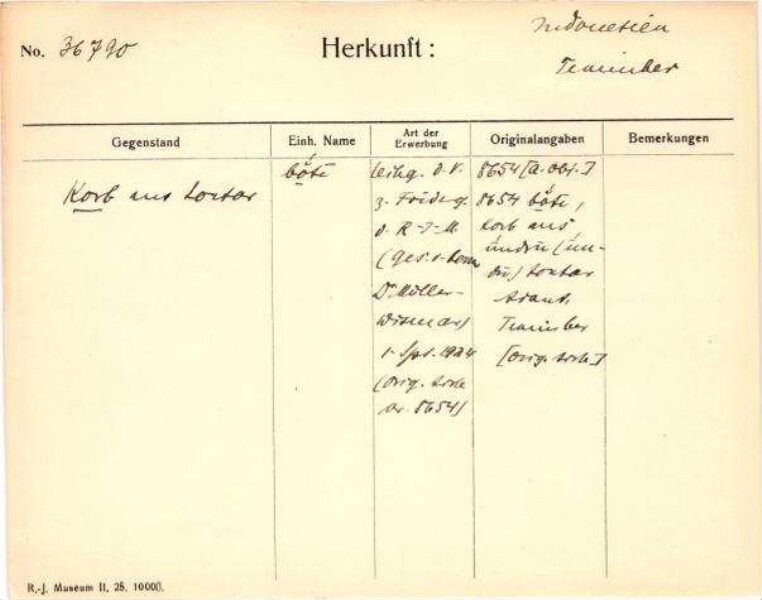 No. 36790
Herkunft:
Indonesien
Tanimber
Gegenstand
Einh. Name
Art der Erwerbung
Originalangaben
Bemerkungen
Korb aus Lontar
böti
Leihg. d. V.
z. Förderg.
d. R-J-M
(Ges. v. Herrn
Dr Müller-
Wismar)
1. Spt. 1924
(orig. 
nr. 8654)
8654 [a. Obj.]
8654 böti,
Korb aus
Lontar
Tanimber
[orig.
R.-J. Museum II, 25, 10000.